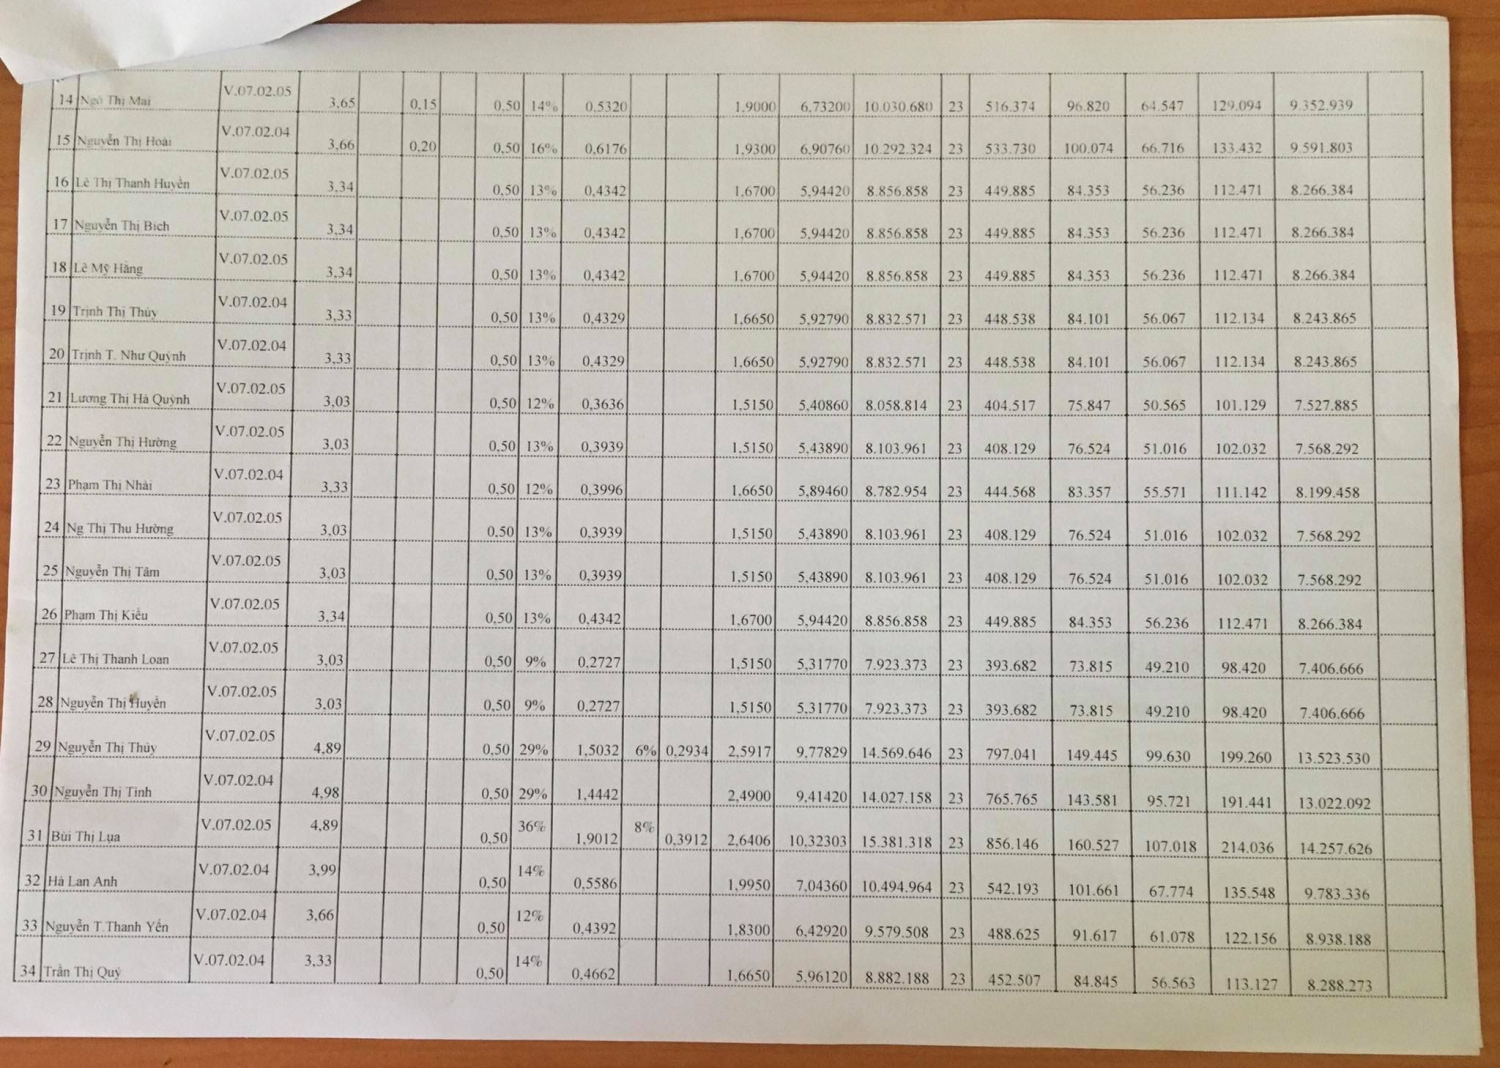 14 Ngô Thị Mai V.07.02.05 3,65 0,15 0,50 14% 0,5320 1,9000 6,73200 10.030.680 23 516.374 96.820 64.547 129.094 9.352.939
15 Nguyễn Thị Hoài V.07.02.04 3,66 0,20 0,50 16% 0,6176 1,9300 6,90760 10.292.324 23 533.730 100.074 66.716 133.432 9.591.803
16 Lê Thị Thanh Huyền V.07.02.05 3,34 0,50 13% 0,4342 1,6700 5,94420 8.856.858 23 449.885 84.353 56.236 112.471 8.266.384
17 Nguyễn Thị Bích V.07.02.05 3,34 0,50 13% 0,4342 1,6700 5,94420 8.856.858 23 449.885 84.353 56.236 112.471 8.266.384
18 Lê Mỹ Hằng V.07.02.05 3,34 0,50 13% 0,4342 1,6700 5,94420 8.856.858 23 449.885 84.353 56.236 112.471 8.266.384
19 Trịnh Thị Thúy V.07.02.04 3,33 0,50 13% 0,4329 1,6650 5,92790 8.832.571 23 448.538 84.101 56.067 112.134 8.243.865
20 Trịnh T. Như Quỳnh V.07.02.04 3,33 0,50 13% 0,4329 1,6650 5,92790 8.832.571 23 448.538 84.101 56.067 112.134 8.243.865
21 Lương Thị Hà Quỳnh V.07.02.05 3,03 0,50 12% 0,3636 1,5150 5,40860 8.058.814 23 404.517 75.847 50.565 101.129 7.527.885
22 Nguyễn Thị Hường V.07.02.05 3,03 0,50 13% 0,3939 1,5150 5,43890 8.103.961 23 408.129 76.524 51.016 102.032 7.568.292
23 Phạm Thị Nhài V.07.02.04 3,33 0,50 12% 0,3996 1,6650 5,89460 8.782.954 23 444.568 83.357 55.571 111.142 8.199.458
24 Ng Thị Thu Hường V.07.02.05 3,03 0,50 13% 0,3939 1,5150 5,43890 8.103.961 23 408.129 76.524 51.016 102.032 7.568.292
25 Nguyễn Thị Tâm V.07.02.05 3,03 0,50 13% 0,3939 1,5150 5,43890 8.103.961 23 408.129 76.524 51.016 102.032 7.568.292
26 Phạm Thị Kiều V.07.02.05 3,34 0,50 13% 0,4342 1,6700 5,94420 8.856.858 23 449.885 84.353 56.236 112.471 8.266.384
27 Lê Thị Thanh Loan V.07.02.05 3,03 0,50 9% 0,2727 1,5150 5,31770 7.923.373 23 393.682 73.815 49.210 98.420 7.406.666
28 Nguyễn Thị Huyền V.07.02.05 3,03 0,50 9% 0,2727 1,5150 5,31770 7.923.373 23 393.682 73.815 49.210 98.420 7.406.666
29 Nguyễn Thị Thủy V.07.02.05 4,89 0,50 29% 1,5032 6% 0,2934 2,5917 9,77829 14.569.646 23 797.041 149.445 99.630 199.260 13.523.530
30 Nguyễn Thị Tình V.07.02.04 4,98 0,50 29% 1,4442 2,4900 9,41420 14.027.158 23 765.765 143.581 95.721 191.441 13.022.092
31 Bùi Thị Lụa V.07.02.05 4,89 0,50 36% 1,9012 8% 0,3912 2,6406 10,32303 15.381.318 23 856.146 160.527 107.018 214.036 14.257.626
32 Hà Lan Anh V.07.02.04 3,99 0,50 14% 0,5586 1,9950 7,04360 10.494.964 23 542.193 101.661 67.774 135.548 9.783.336
33 Nguyễn T.Thanh Yến V.07.02.04 3,66 0,50 12% 0,4392 1,8300 6,42920 9.579.508 23 488.625 91.617 61.078 122.156 8.938.188
34 Trần Thị Quý V.07.02.04 3,33 0,50 14% 0,4662 1,6650 5,96120 8.882.188 23 452.507 84.845 56.563 113.127 8.288.273